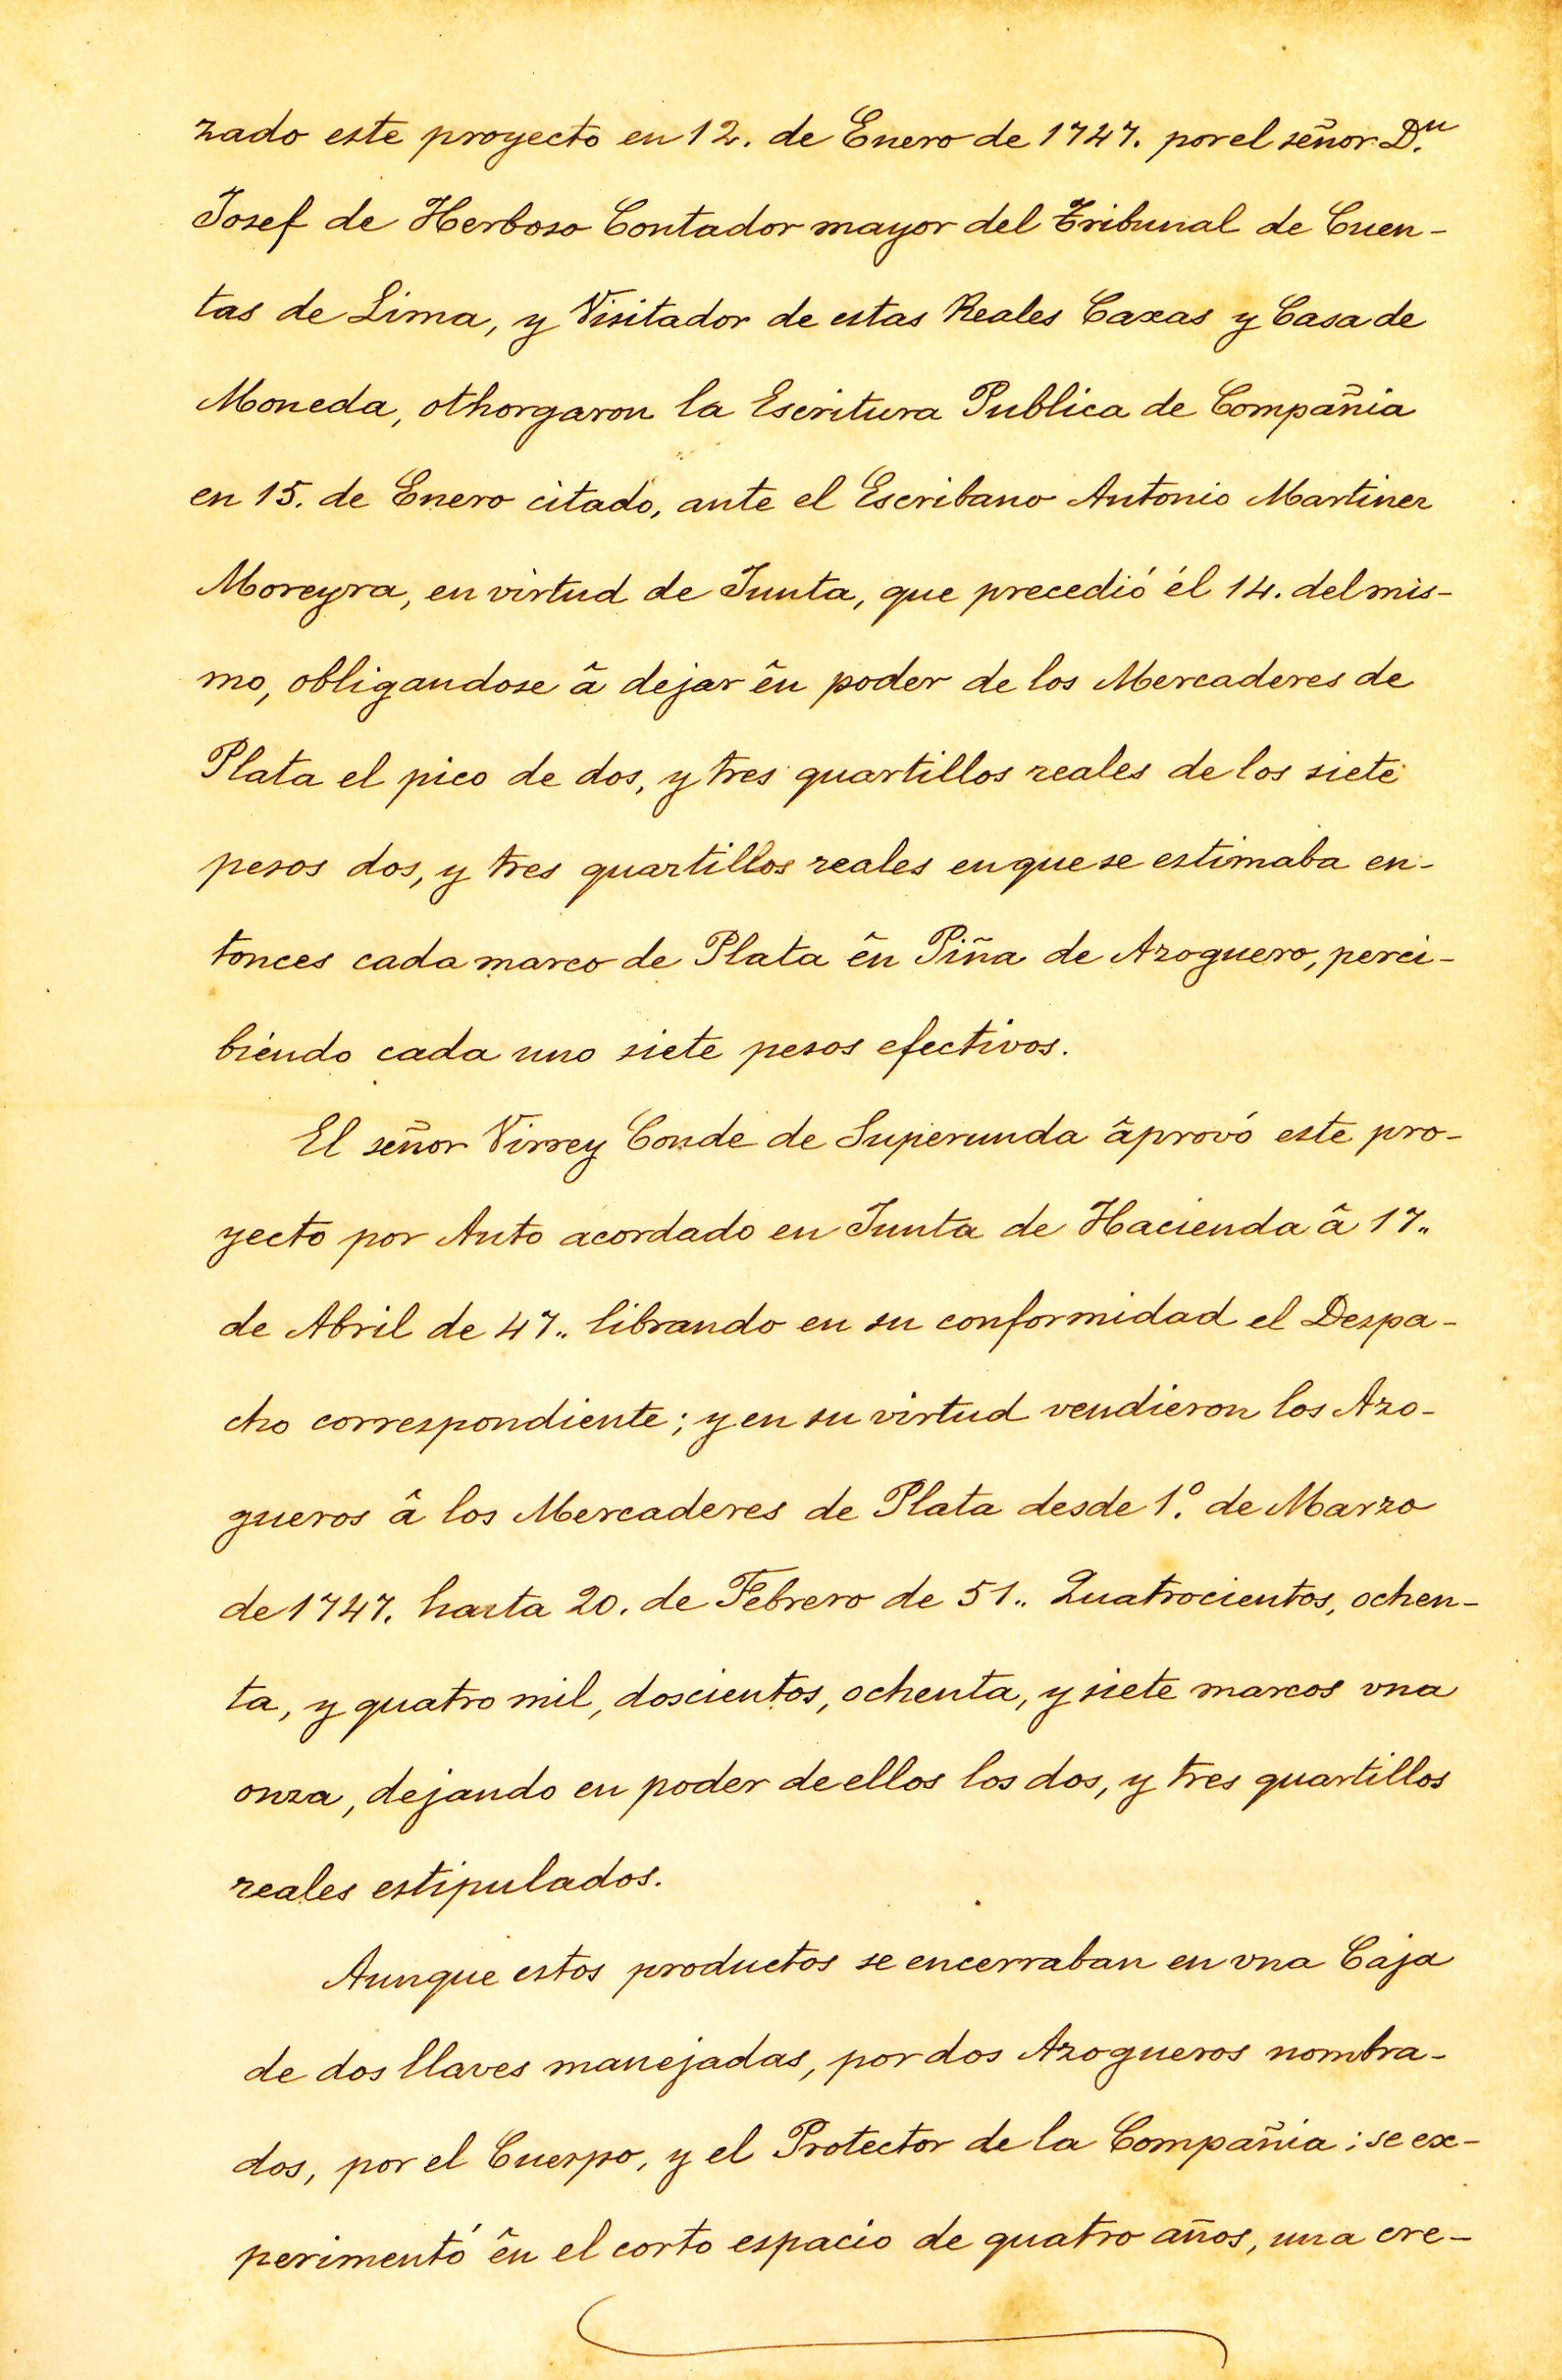 zado este proyecto en 12. de Enero de 1747. por el señor D.ⁿ
Josef de Herboso Contador mayor del Tribunal de Cuen-
tas de Lima, y Visitador de estas Reales Caxas y Casa de
Moneda, othorgaron la Escritura Publica de Compañia
en 15. de Enero citado, ante el Escribano Antonio Martinez
Moreyra, en virtud de Junta, que precedió él 14. del mis-
mo, obligandose â dejar ên poder de los Mercaderes de
Plata el pico de dos, y tres quartillos reales de los siete
pesos dos, y tres quartillos reales en que se estimaba en-
tonces cada marco de Plata ên Piña de Azoguero, perci-
biendo cada uno siete pesos efectivos.
El señor Virrey Conde de Superunda âprovó este pro-
yecto por Auto acordado en Junta de Hacienda â 17..
de Abril de 47.. librando en su conformidad el Despa-
cho correspondiente; y en su virtud vendieron los Azo-
gueros â los Mercaderes de Plata desde 1.º de Marzo
de 1747. hasta 20. de Febrero de 51.. Quatrocientos, ochen-
ta, y quatro mil, doscientos, ochenta, y siete marcos vna
onza, dejando en poder de ellos los dos, y tres quartillos
reales estipulados.
Aunque estos productos se encerraban en vna Caja
de dos llaves manejadas, por dos Azogueros nombra-
dos, por el Cuerpo, y el Protector de la Compañia: se ex-
perimentó ên el corto espacio de quatro años, una cre-